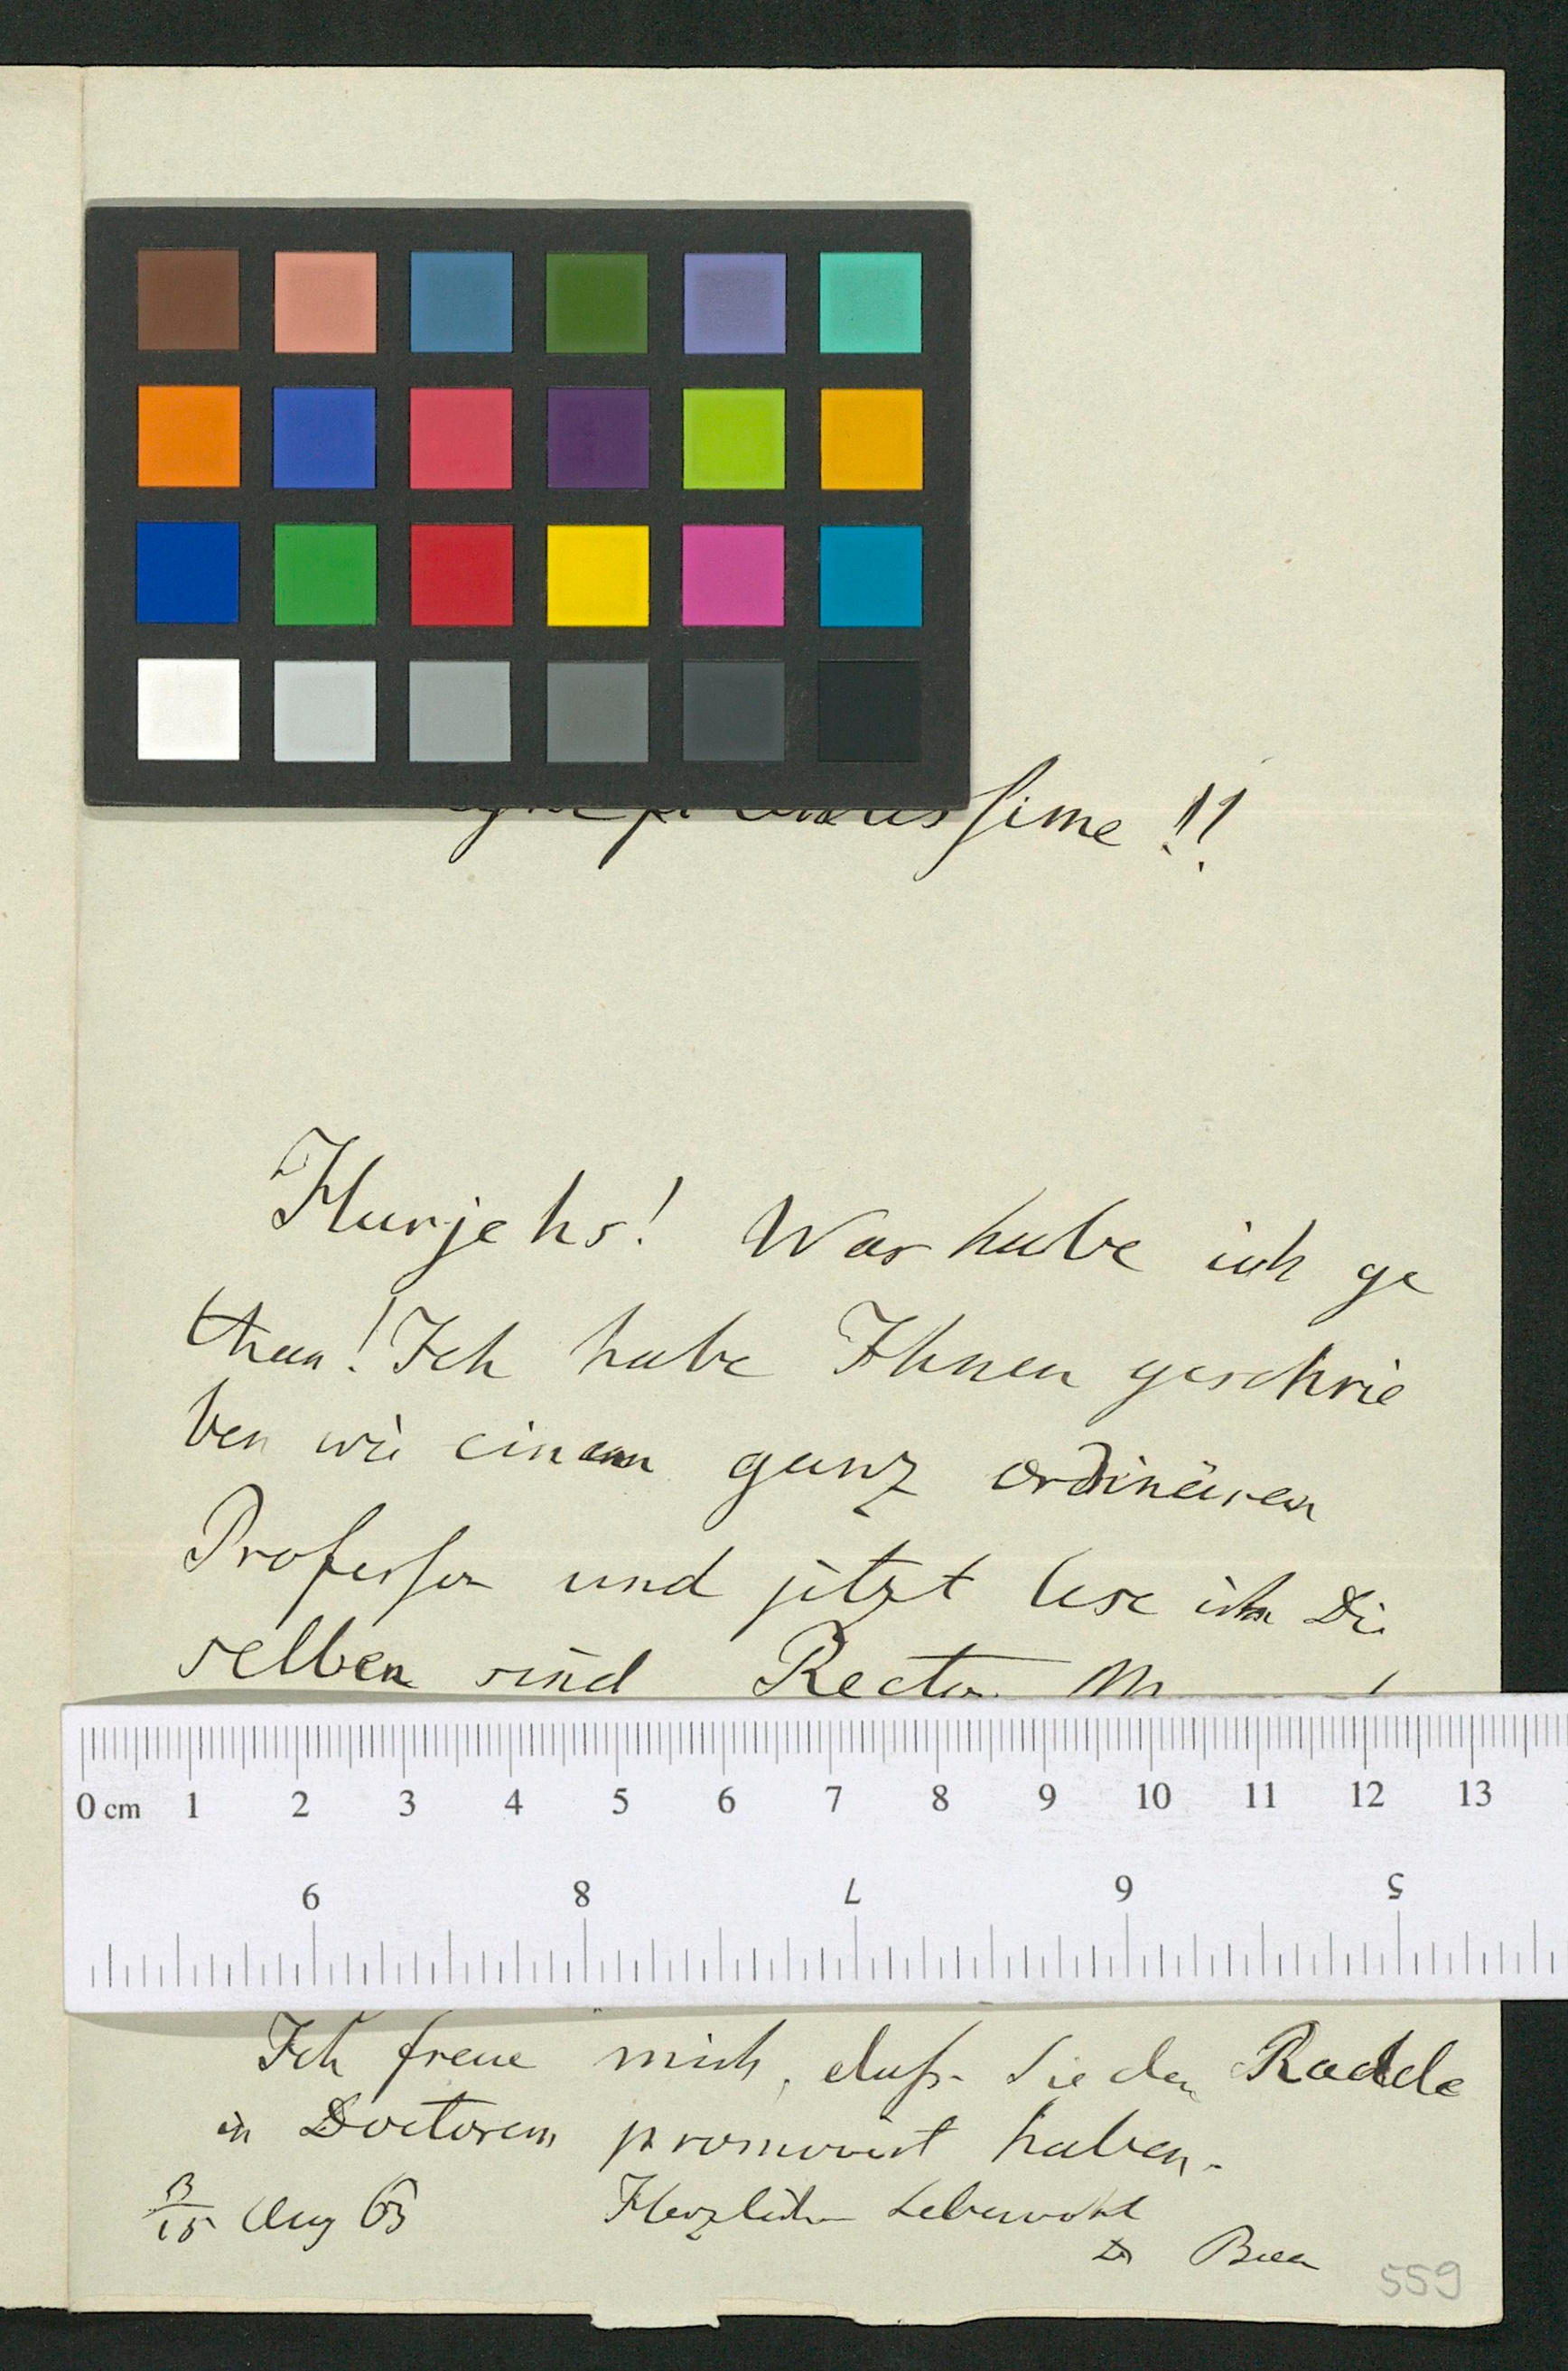 ssime !!
Hurjehs! Was habe ich ge
than! Ich habe Ihnen geschrie
ben wie einem ganz ordinären
Professor und jetzt lese ich Die
selben sind Rector
0 cm 1 2 3 4 5 6 7 8 9 10 11 12 13
9 8 7 6 5
Ich freue mich, daß Sie den Radde
in Doctorem promovirt haben.
3/15 Aug 63 Herzlichen Lebewohl
Dr Baer
559